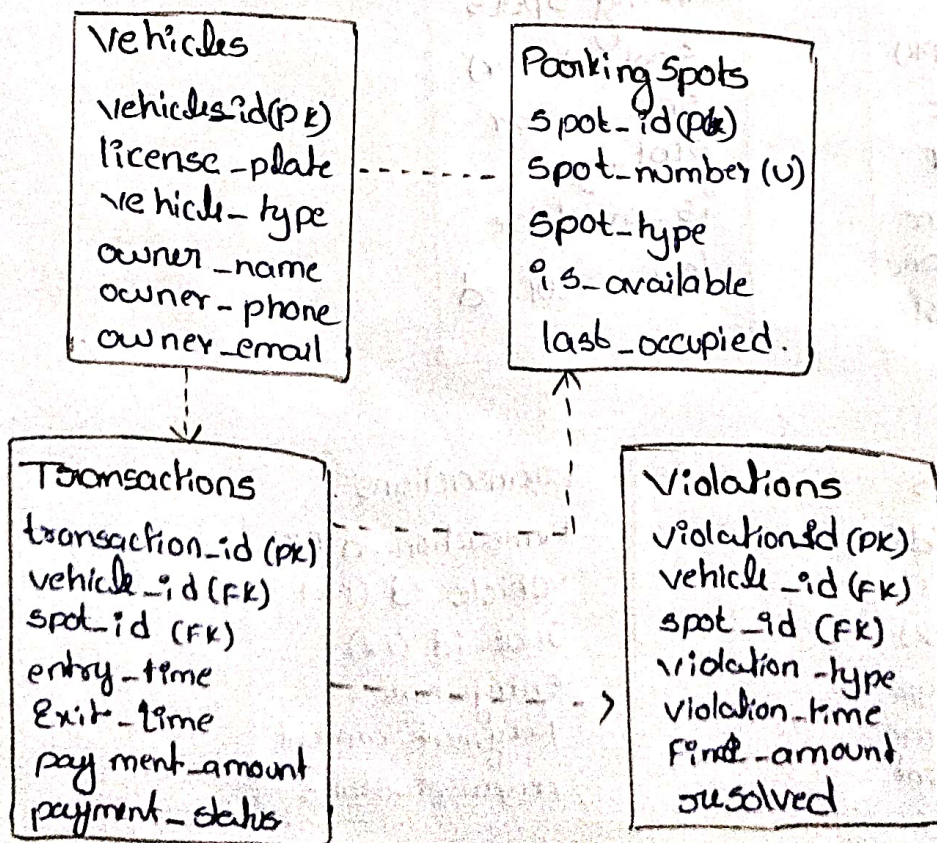 Vehicles
vehicles_id(PK)
license_plate
vehicle_type
owner_name
owner_phone
owner_email
Parking Spots
spot_id(PK)
spot_number (U)
spot_type
is_available
last_occupied.
Transactions
transaction_id (PK)
vehicle_id (FK)
spot_id (FK)
entry_time
Exit_time
payment_amount
payment_status
Violations
violation_id (PK)
vehicle_id (FK)
spot_id (FK)
violation_type
violation_time
Fine_amount
resolved